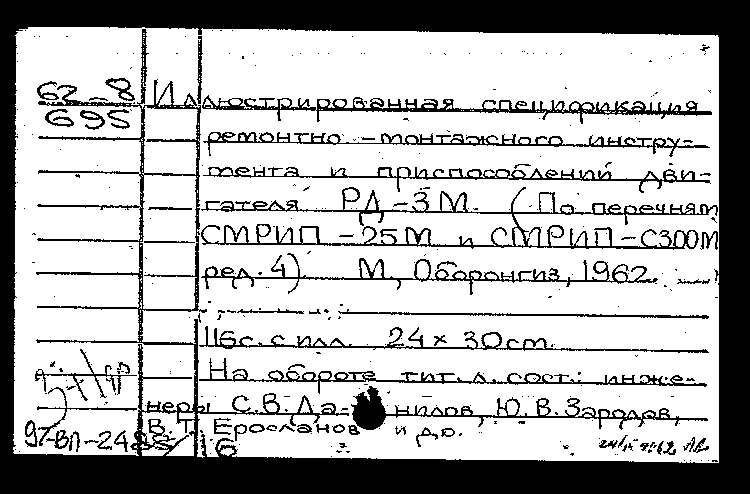 62-8 Иллюстрированная спецификация
695
ремонтно-монтажного инстру-
мента и приспособлений дви-
гателя РД-3М. (По перечням
СМРИП-25М и СМРИП-С300М
ред. 4). М., Оборонгиз, 1962.
116с. с илл. 24 × 30cm.
На обороте тит. л. сост.: инже-
неры С.В. Да-нилов, Ю.В. Зародов,
В.Т. Еросланов и др.
16